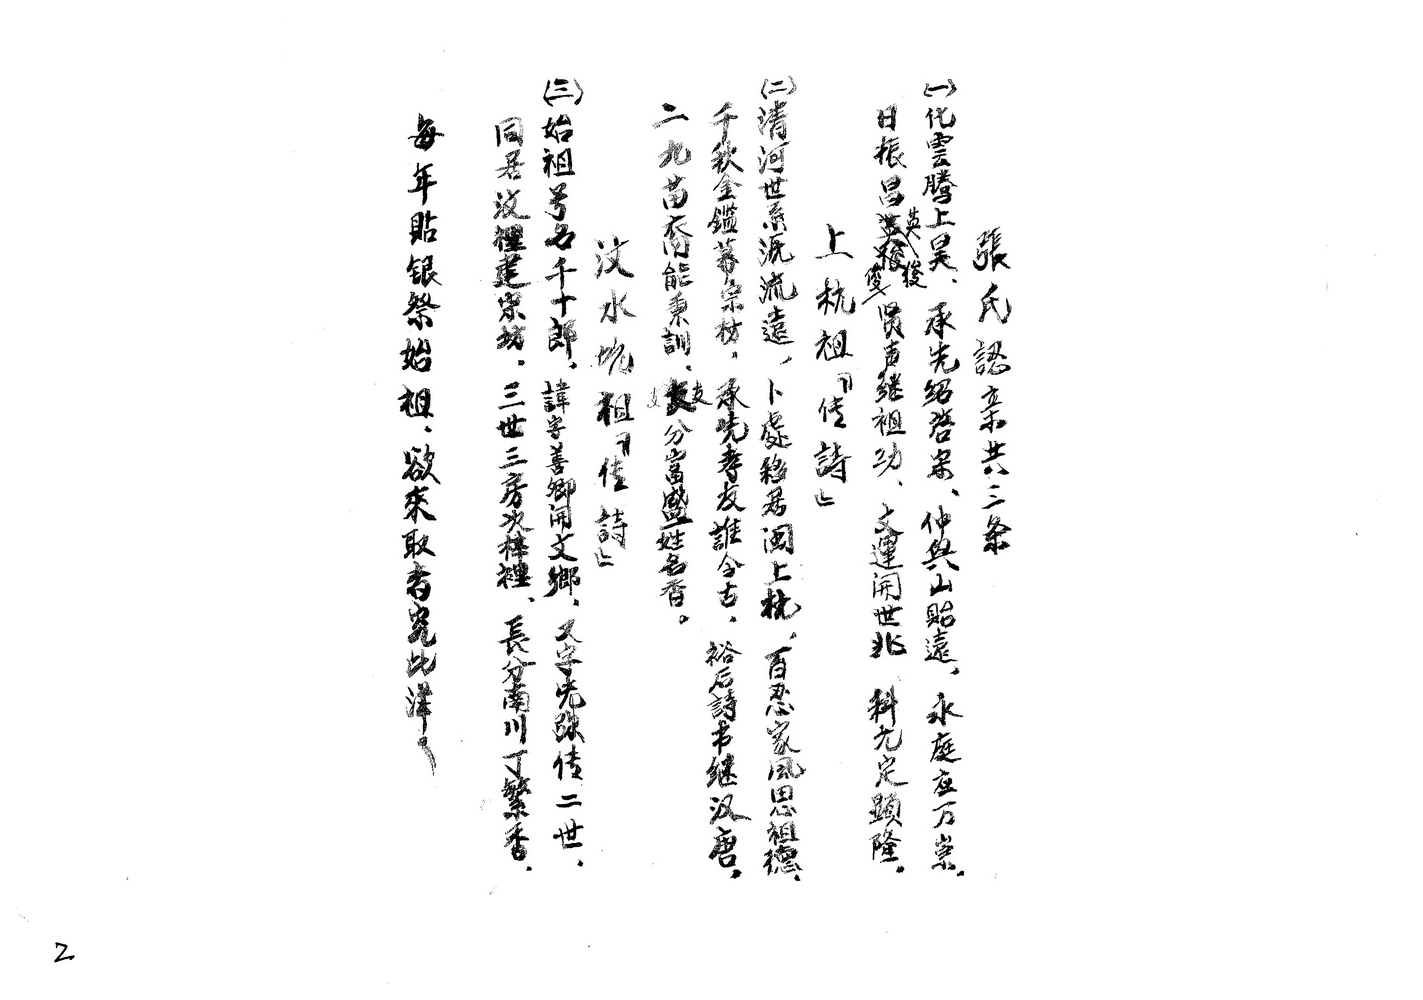 張氏認亲共三条
(一)化雲騰上昊、承先紹啓宗、仲與山貽遠、永庭在万崇.
日振昌英俊賢声継祖功、文運開世兆 科元定顕隆.
上杭祖『传詩』
(二)清河世系派流遠,卜處移居闽上杭,百忍家風思祖德,
千秋金鑑募宗枋,承先孝友誰今古,裕后詩书継汉唐,
二九苗裔能秉訓、支分富盛姓名香。
汶水坑祖『传詩』
(三)始祖号名千十郎,諱字善卿開文鄉,又字先 传二世,
同居汶裡建宗坊.三世三房次樟裡、長分南川丁繁香.
每年貼銀祭始祖、欲來取者究比洋。
2